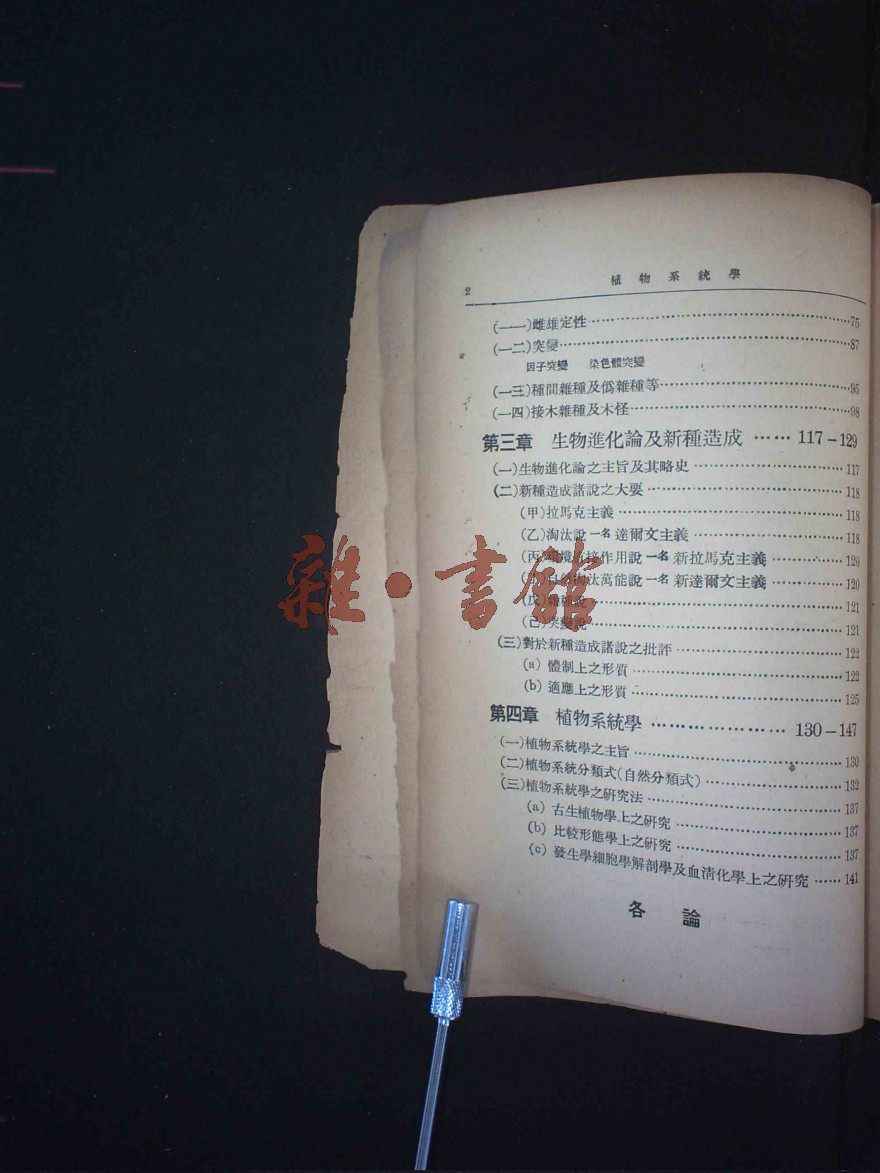 2
植物系統學
(一一)雌雄定性…………75
(一二)突變…………87
因子突變 染色體突變
(一三)種間雜種及偽雜種等…………95
(一四)接木雜種及木怪…………98
第三章 生物進化論及新種造成……117-129
(一)生物進化論之主旨及其略史…………117
(二)新種造成諸說之大要…………118
(甲)拉馬克主義…………118
(乙)淘汰說一名達爾文主義…………118
(丙)環境直接作用說一名新拉馬克主義…………120
(丁)自然淘汰萬能說一名新達爾文主義…………120
(戊)雜種說…………121
(己)突變說…………121
(三)對於新種造成諸說之批評…………122
(a) 體制上之形質…………122
(b) 適應上之形質…………125
第四章 植物系統學…………130-147
(一)植物系統學之主旨…………130
(二)植物系統分類式(自然分類式)…………132
(三)植物系統學之研究法…………137
(a) 古生植物學上之研究…………137
(b) 比較形態學上之研究…………137
(c) 發生學細胞學解剖學及血清化學上之研究……141
各論
雜·書館